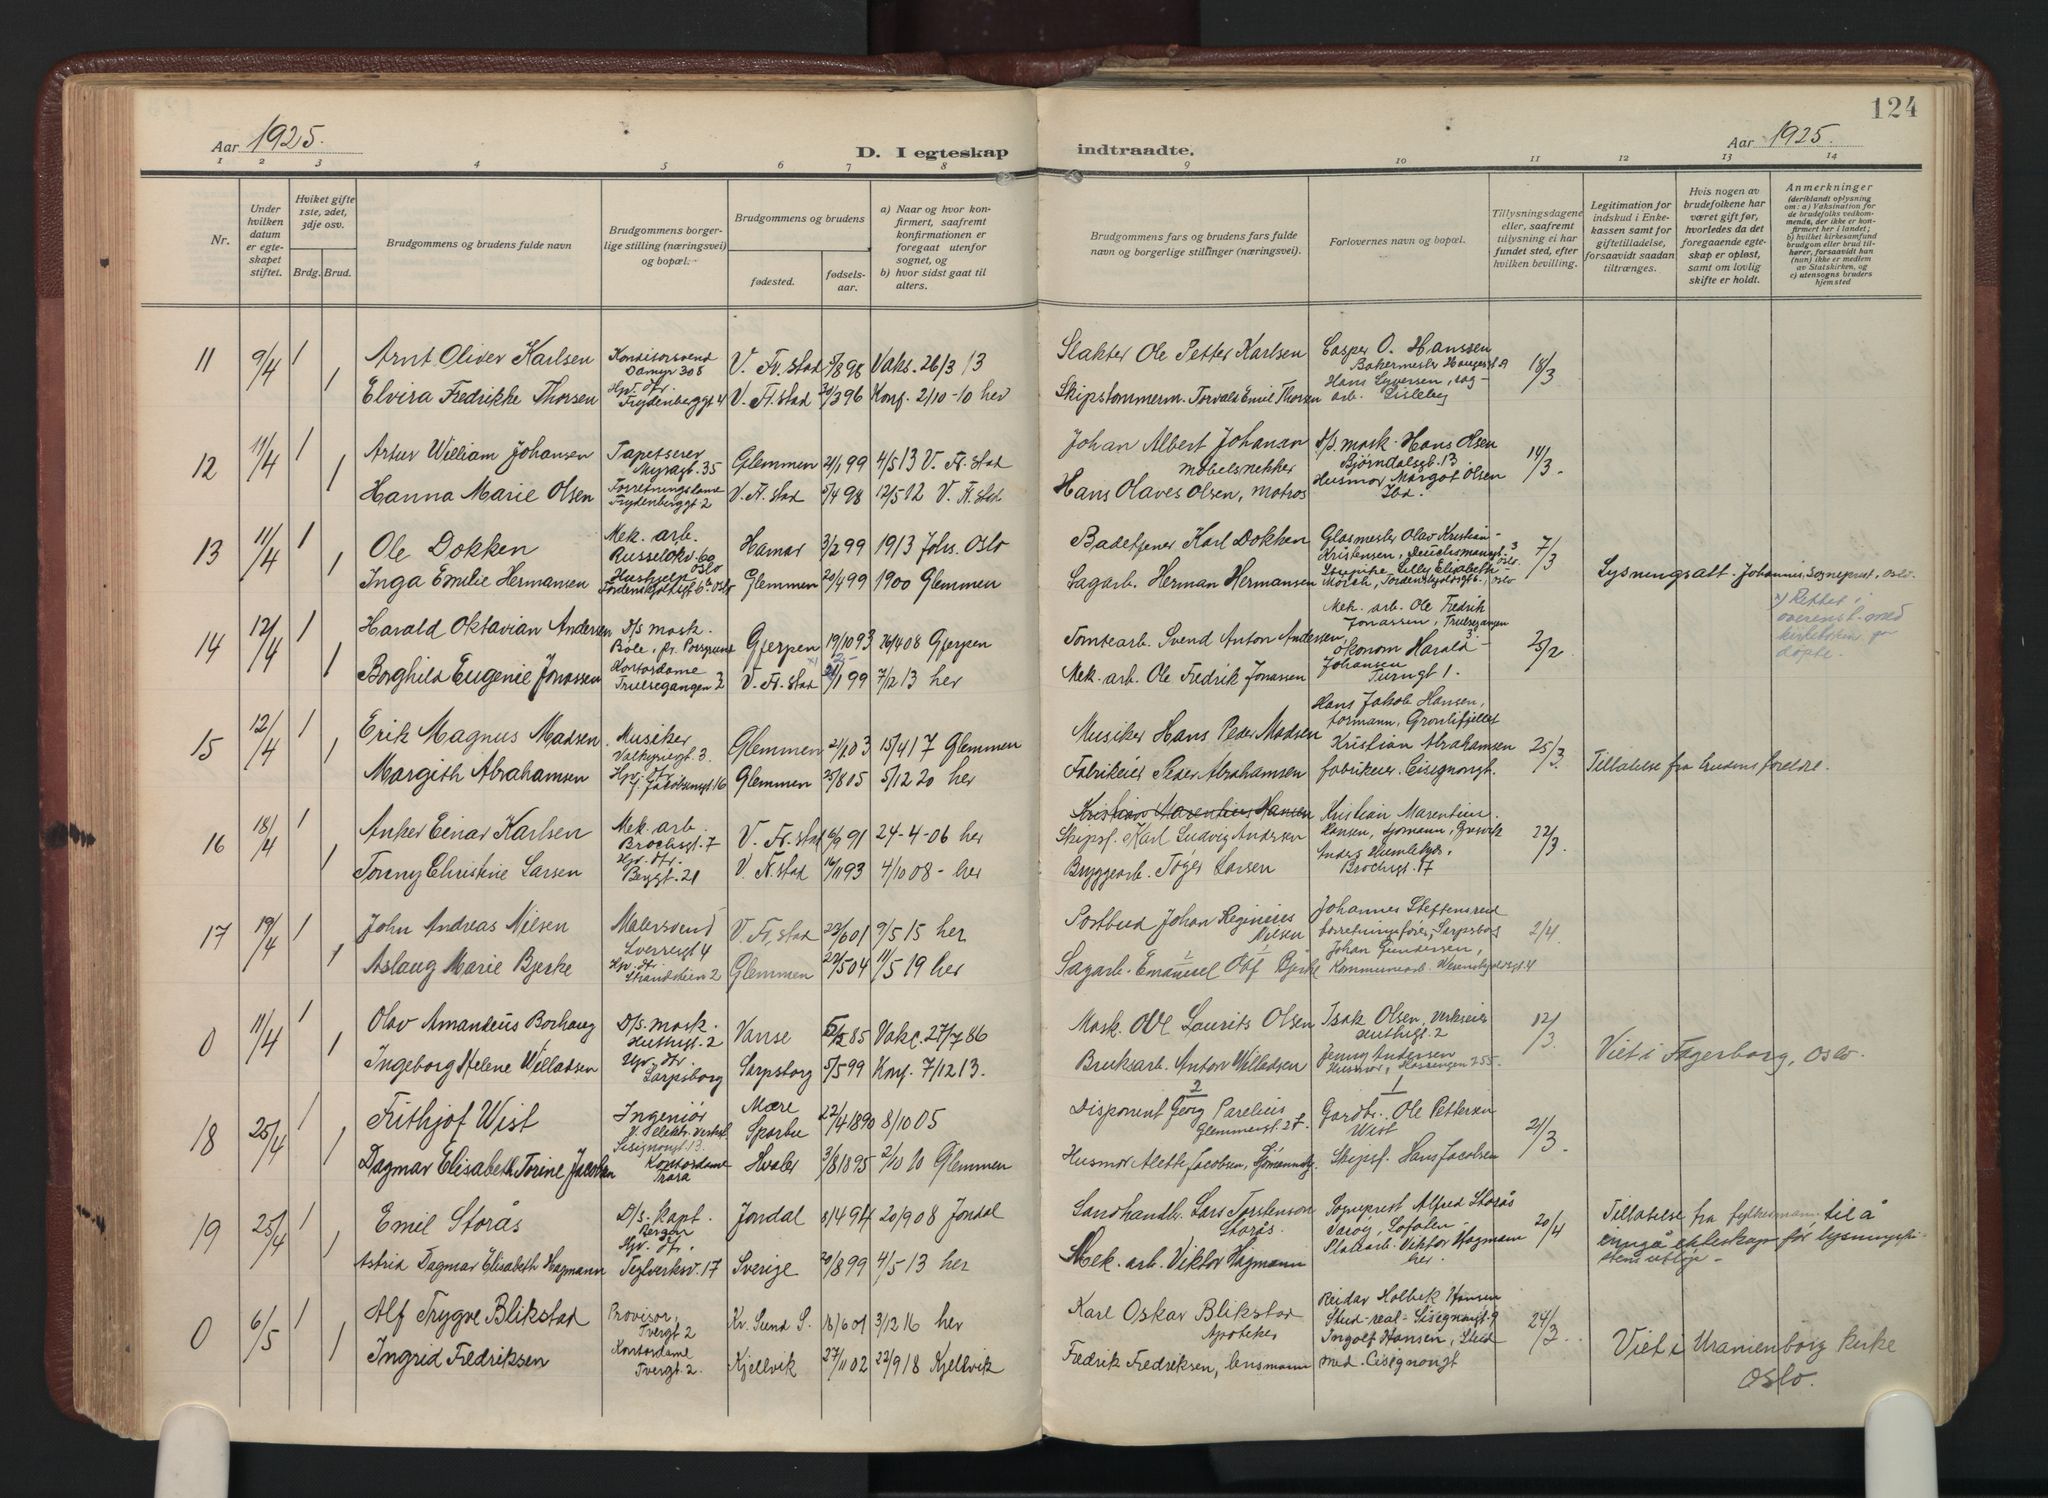 124
Aar 1925.
D. I egteskap
indtraadte.
Aar 1925.
1 2 3 4 5 6 7 8 9 10 11 12 13 14
Nr.
Under hvilken datum er egteskapet stiftet.
Hviket gifte 1ste, 2det, 3dje osv.
Brdg. Brud.
Brudgommens og brudens fulde navn
Brudgommens og brudens borgerlige stilling (næringsvei) og bopæl.
Brudgommens og brudens
fødested.
fødselsaar.
a) Naar og hvor konfirmert, saafremt konfirmationen er foregaat utenfor sognet, og
b) hvor sidst gaat til alters.
Brudgommens fars og brudens fars fulde navn og borgerlige stillinger (næringsvei).
Forlovernes navn og bopæl.
Tillysningsdagene eller, saafremt tillysning ei har fundet sted, efter hvilken bevilling.
Legitimation for indskud i Enkekassen samt for giftetilladelse, forsaavidt saadan tiltrænges.
Hvis nogen av brudefolkene har været gift før, hvorledes da det foregaaende egteskap er opløst, samt om lovlig skifte er holdt.
Anmerkninger (deriblandt oplysning om: a) Vaksination for de brudefolks vedkommende, der ikke er konfirmert her i landet; b) hvilket kirkesamfund brudgom eller brud tilhører, forsaavidt han (hun) ikke er medlem av Statskirken, og c) utensogns bruders hjemsted
11 9/4 1 Arnt Oliver Karlsen Konditorsvend Damyr 308 V. Fr.stad 5/8 98 Vaks. 26/3 13 Slakter Ole Petter Karlsen Casper O. Hanssen Bakermester 18/3
1 Elvira Fredrikke Thorsen Hpv. dtr. Frydenberggt 4 V. Fr.stad 396 Konf. 2/10-10 her Skipstømmerm. Torvald Emil Thorsen Hans Syversen, sagarb. Lisleby
12 11/4 1 Artur William Johansen Tapetserer Myragt. 35 Glemmen 21/1 99 4/5 13 V. Fr.stad Johan Albert Johansen møbelsnekker D/s mask. Hans Olsen Bjørndalsgt. 13 14/3
1 Hanna Marie Olsen Forretningsdame Frydenberggt 2 V. Fr.stad 5/4 98 12/5 02 V. Fr.stad Hans Olaves Olsen, matros Husmor Margot Olsen Ibd.
13 11/4 1 Ole Dokken Mek. arb. Oslo Hamar 3/2 99 1913 Johs. Oslo Badetjener Karl Dokken Glasmester Olav Kristian Kristensen, 7/3
1 Inga Emilie Hermansen Hushjelp Glemmen 20/4 99 1900 Glemmen Sagarb. Herman Hermansen Lysningsatt. Johannis, Sogneprest, Oslo.
14 12/4 1 Harald Oktavian Andersen D/s mask. Böle, pr. Porsgrund Gjerpen 19/10 93 26/4 08 Gjerpen Tomtearb. Svend Anton Andersen, Mek. arb. Ole Fredrik Jonassen, Trulsegangen 3. 25/2
1 Borghild Eugenie Jonassen Kontordame Trulsegangen 3 V. Fr.stad 1 99 7/12 13 her Mek. arb. Ole Fredrik Jonassen økonom Harald Johansen Turngt 1.
x) Rettet i overenst. med kirkeboken for døpte.
15 12/4 1 Erik Magnus Madsen Musiker Valkyriegt. 3 Glemmen 21/1 03 15/4 17 Glemmen Musiker Hans Peder Madsen Hans Jakob Hansen, formann, Grønlifjellet 25/3.
1 Margith Abrahamsen Hpv. dtr. Glemmen 25/8 05 5/12 20 her Fabrikeier Peder Abrahamsen Kristian Abrahamsen fabrikeier. Cicignongt. Tillatelse fra brudens foreldre.
16 18/4 1 Anker Einar Karlsen Mek. arb. Brochsgt. 7 V. Fr.stad 9 91 24-4-06 her Kristian Marentius Hansen Skipsf. Karl Ludvig Andersen Kristian Marentius Hansen, 22/3.
1 Tonny Christine Larsen Hpv. dtr. Bergt. 21 V. Fr.stad 16/11 93 4/10 08 - her Bryggearb. Töger Larsen Brochsgt. 17
17 19/4 1 John Andreas Nielsen Malersvend Sverresgt 4 V. Fr.stad 22/6 01 9/5 15 her Postbud Johan Reginius Nielsen Johannes Steffensrud forretningsfører, Sarpsborg 2/4.
1 Aslaug Marie Bjerke Hpv. dtr. Strandstien 2 Glemmen 22/5 04 11/5 19 her Sagarb. Emanuel Olf Bjerke Johan Gundersen, Kommunearb.
0 11/4 1 Olav Amandeus Borhaug D/s. mask. Vanse 85 Vakc. 27/7 86 Mask. Ole Laurits Olsen Isak Olsen, verkseier 12/3.
1 Ingeborg Helene Willadsen Hpv. dtr. Sarpsborg Sarpsborg 5/5 99 Konf. 7/12 13. Bruksarb. Anton Willadsen Jenny Andersen Husmor, 255. Viet i Fagerborg, Oslo.
18 25/4 1 Frithjof Wist Ingeniør Cicignongt 13. Mære Sparbu 22/4 1890 8/10 05 2 Disponent Georg Parelius Glemmengt. 27. 1 Gårdbr. Ole Pettersen Wist 21/3.
1 Dagmar Elisabeth Torine Jacobsen Kontordame Trara Hvaler 3/8 1895 2/10 10 Glemmen Husmor Alette Jacobsen, Skipsf. Hans Jacobsen
19 25/4 1 Emil Storås D/s. kapt. Bergen Jondal 8/4 94 20/9 08 Jondal Landhandler Lars Torstenson Storås Sogneprest Alfred Storås Værøy, Lofoten 20/4 Tillatelse fra fylkesmann til å inngå ekteskap før lysningsfristens utløp.
1 Astrid Dagmar Elisabeth Hagmann Hpv. dtr. Teglverksv. 17 Sverige 20/8 99 4/5-13 her Mek. arb. Viktor Hagmann Platearb. Viktor Hagmann her.
0 6/5 1 Alf Trygve Blikstad Provisor, Tvergt 2 Kr.sund S. 18/6 01 3/12 16 her Karl Oskar Blikstad Apoteker Reidar Holbek Hansen Stud. real. Cicignongt. 9 24/3.
1 Ingrid Fredriksen Kontordame Tvergt. 2. Kjellvik 27/11 02 22/9 18 Kjellvik Fredrik Fredriksen, lensmann Ingolf Hansen, Stud med. Cicignongt Viet i Uranienborg kirke Oslo.